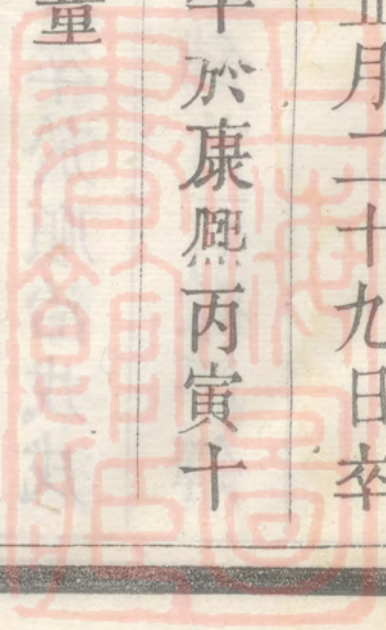 正月二十九日卒
於康熙丙寅十
童